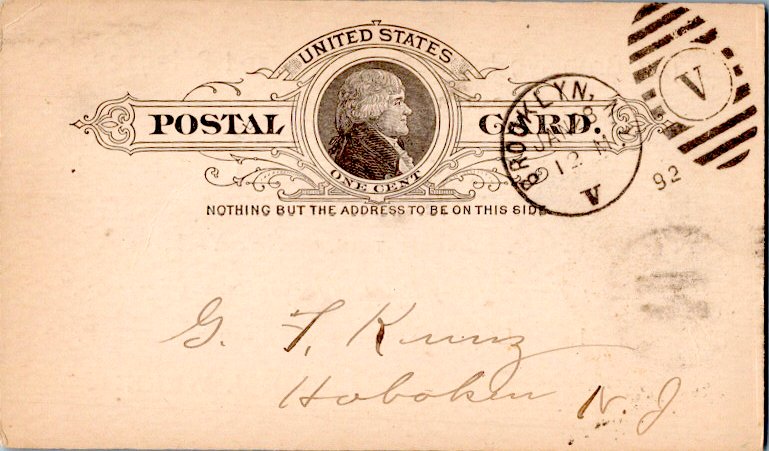 UNITED STATES
POSTAL CARD.
ONE CENT
NOTHING BUT THE ADDRESS TO BE ON THIS SIDE
BROOKLYN, N.Y.
JAN 8
12 M
92
V
V
G. F. Kunz
Hoboken N. J.